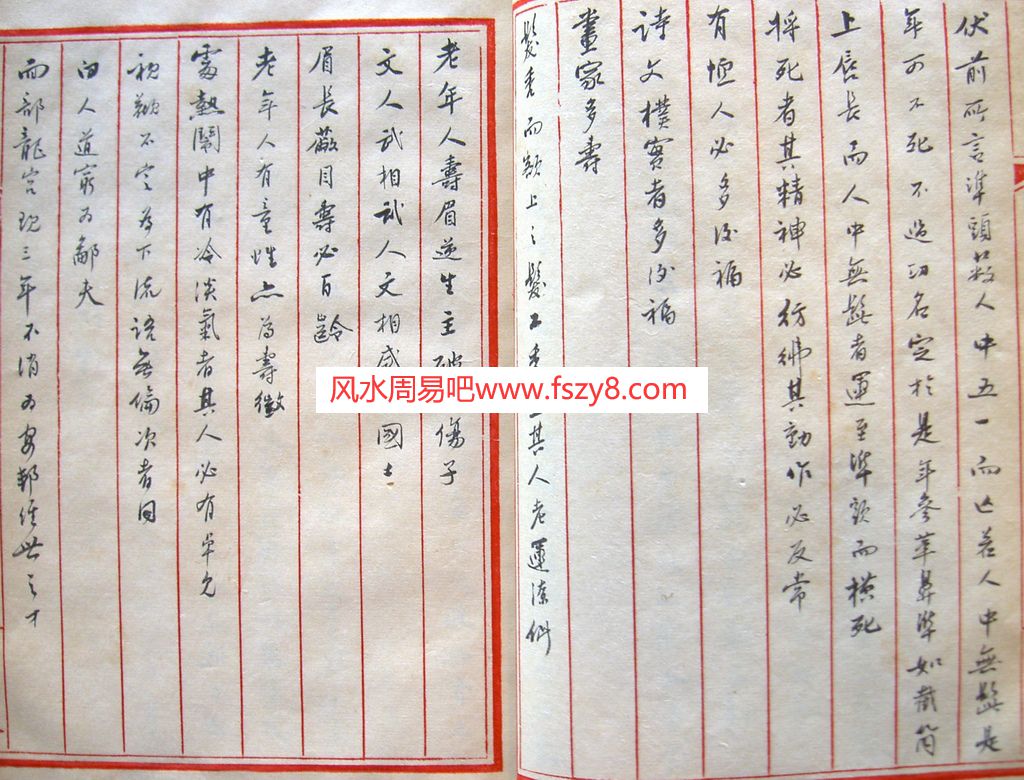 伏前所言準頭蓋人中五一而亡若人中無髭是
年可不死不過功名定於是年參革鼻準如截筒
上唇長而人中無髭者運至準頭而橫死
將死者其精神必彷彿其動作必反常
有恒人必多後福
詩文樸實者多後福
畫家多壽
髮禿而額上之髮不禿 其人老運潦倒
老年人壽眉逆生主 傷子
文人武相武人文相 國士
眉長蔽目壽必百齡
老年人有童性亦為壽徵
處熱鬧中有冷淡氣者其人必有卓見
視瞻不定為下流語無倫次者同
白人道窮為鄙夫
而部龍宮現三年不消為安邦經世之才
風水周易吧www.fszy8.com